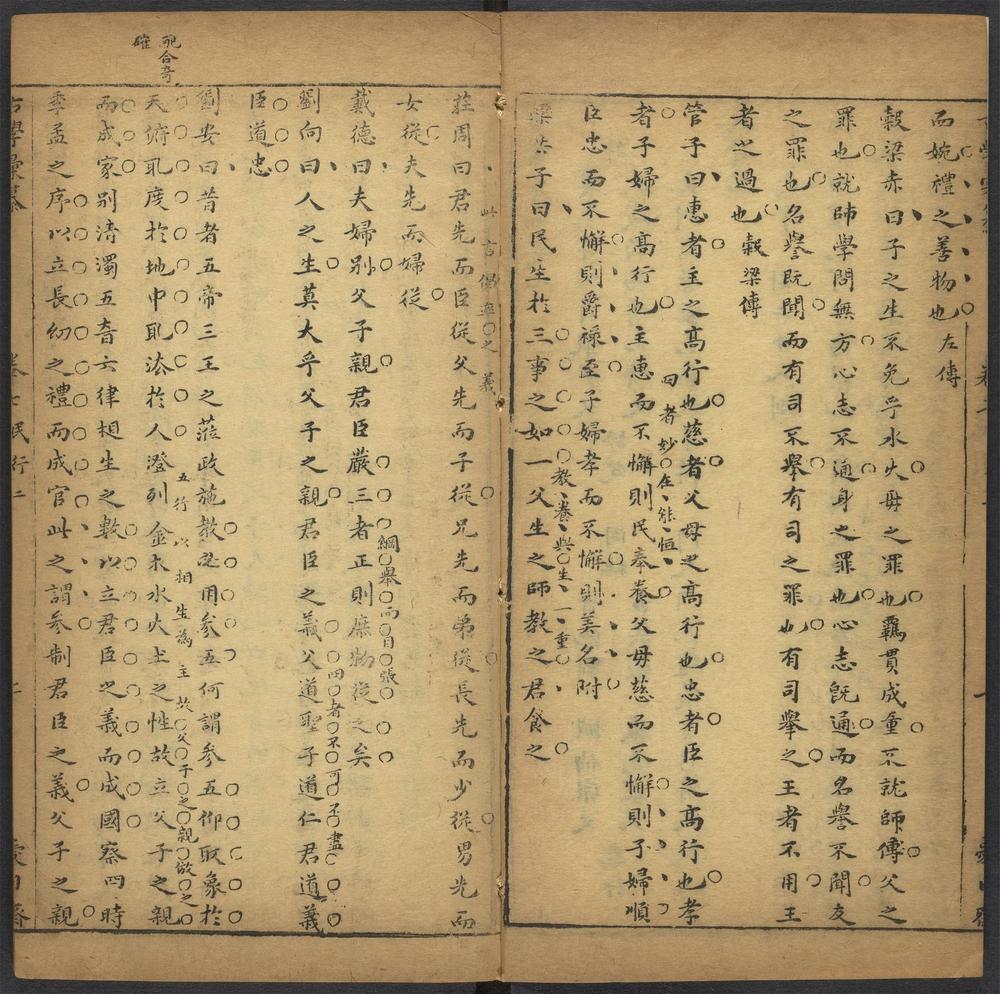 而婉禮之善物也左傳
穀梁赤曰子之生不免乎水火母之罪也羈貫成童不就師傅父之
罪也就師學問無方心志不通身之罪也心志既通而名譽不聞友
之罪也名譽既聞而有司不舉有司之罪也有司舉之王者不用王
者之過也穀梁傳
管子曰惠者主之高行也慈者父母之高行也忠者臣之高行也孝
四者妙在能恒
者子婦之高行也主惠而不懈則民奉養父母慈而不懈則子婦順
臣忠而不懈則爵祿至子婦孝而不懈則美名附
教養與生一一重
欒共子曰民生於三事之如一父生之師教之君食之
此言倡率之義
莊周曰君先而臣從父先而子從兄先而弟從長先而少從男先而
女從夫先而婦從
綱舉而目張
戴德曰夫婦別父子親君臣嚴三者正則庶物從之矣
四者不可不盡
劉向曰人之生莫大乎父子之親君臣之義父道聖子道仁君道義
臣道忠
劉安曰昔者五帝三王之蒞政施教必用參五何謂參五仰取象於
五行以相生為主故父子之親倣之
配合奇
確
天俯取度於地中取法於人澄列金木水火土之性故立父子之親
而成家別清濁五音六律相生之數以立君臣之義而成國察四時
季孟之序以立長幼之禮而成官此之謂參制君臣之義父子之親
卷七民行二
二